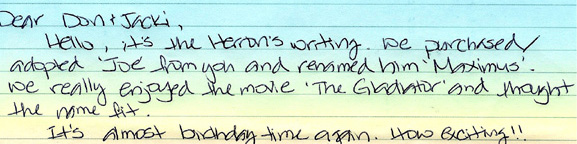 Dear Don & Jacki,
Hello, it's the Herron's writing. We purchased/
adopted 'Joe' from you and renamed him 'Maximus'.
We really enjoyed the movie 'The Gladiator' and thought
the name fit.
It's almost birthday time again. How exciting!!